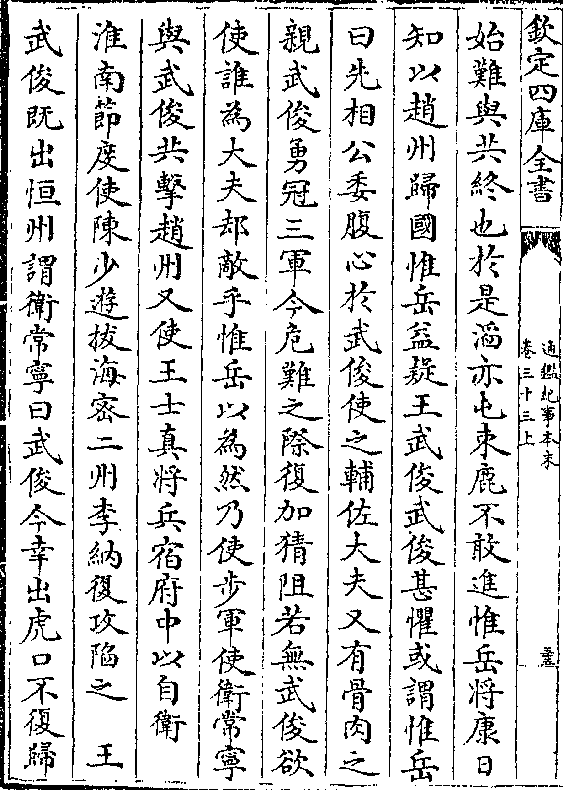 欽定四庫全書
通鑑紀事本末
卷三十三上
始難與共終也於是滔亦屯束鹿不敢進惟岳將康日
知以趙州歸國惟岳益疑王武俊武俊甚懼或謂惟岳
曰先相公委腹心於武俊使之輔佐大夫又有骨肉之
親武俊勇冠三軍今危難之際復加猜阻若無武俊欲
使誰為大夫却敵乎惟岳以為然乃使步軍使衛常寧
與武俊共擊趙州又使王士真將兵宿府中以自衛
淮南節度使陳少遊拔海密二州李納復攻陷之　王
武俊既出恒州謂衛常寧曰武俊今幸出虎口不復歸